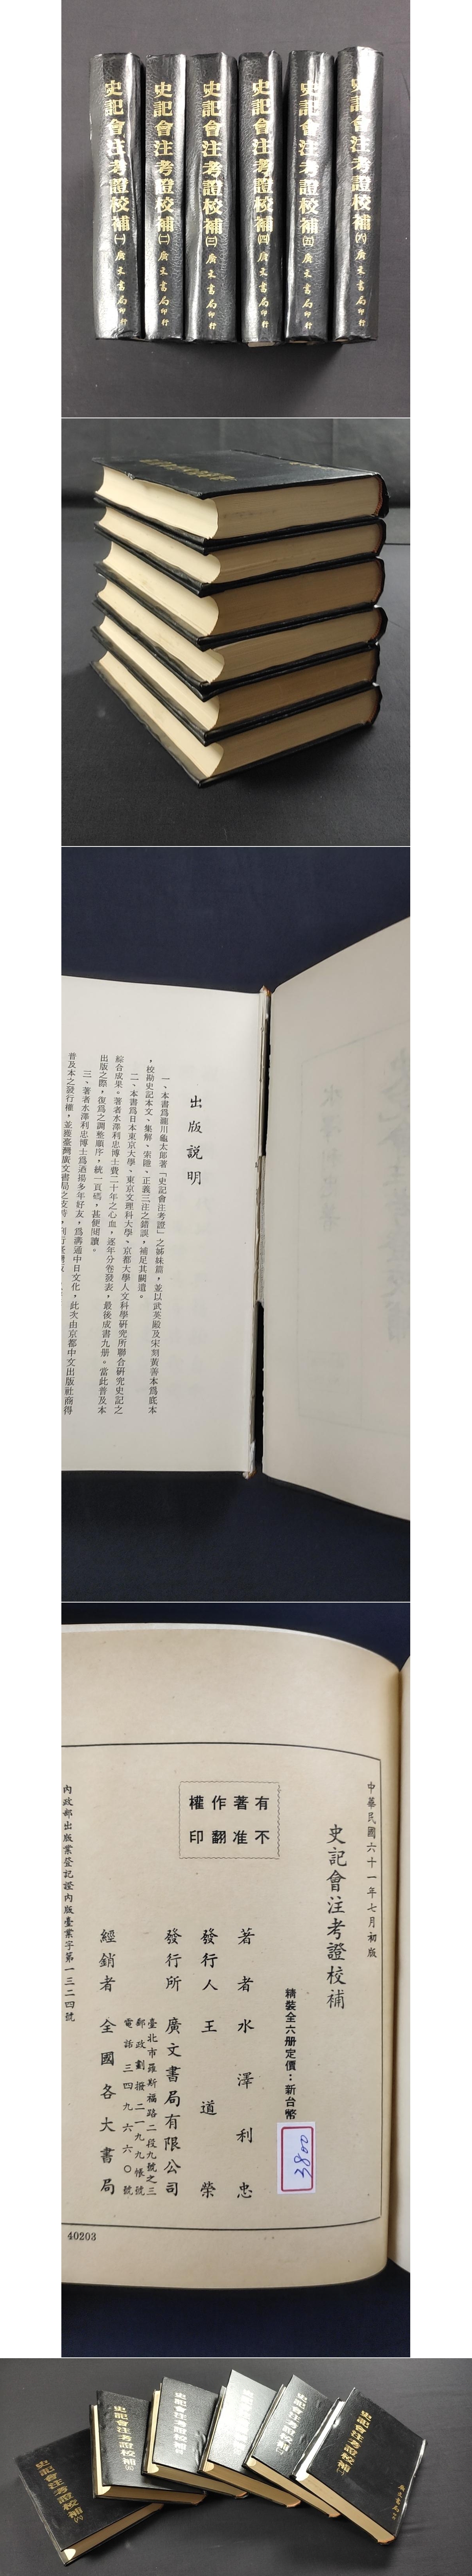 史記會注考證校補㈠ 廣文書局印行
史記會注考證校補㈡ 廣文書局印行
史記會注考證校補㈢ 廣文書局印行
史記會注考證校補㈣ 廣文書局印行
史記會注考證校補㈤ 廣文書局印行
史記會注考證校補㈥ 廣文書局印行
出版説明
一、本書爲瀧川龜太郎著「史記會注考證」之姊妹篇，並以武英殿及宋刻黃善本爲底本
，校勘史記本文、集解、索隱、正義三注之錯誤，補足其闕遺。
二、本書爲日本東京大學、東京文理科大學、京都大學人文科學研究所聯合研究史記之
綜合成果。著者水澤利忠博士費二十年之心血，逐年分卷發表，最後成書九册。當此普及本
出版之際，復爲之調整順序，統一頁碼，甚便閱讀。
三、著者水澤利忠博士爲道揚多年好友，爲溝通中日文化，此次由京都中文出版社商得
普及本之發行權，並接臺灣廣文書局之支持，
中華民國六十一年七月初版
史記會注考證校補
精裝全六册定價：新台幣
3800
有著作權
不准翻印
著者 水澤利忠
發行人 王道榮
發行所 廣文書局有限公司
臺北市羅斯福路二段九號之三
郵政劃撥二一九九帳號
電話三四九六六〇號
經銷者 全國各大書局
內政部出版業登記證內版臺業字第一三二四號
40203
史記會注考證校補㈥
史記會注考證校補㈤
史記會注考證校補
史記會注考證校補
史記會注考證校補㈡
史記會注考證校補㈠
廣文書局印行